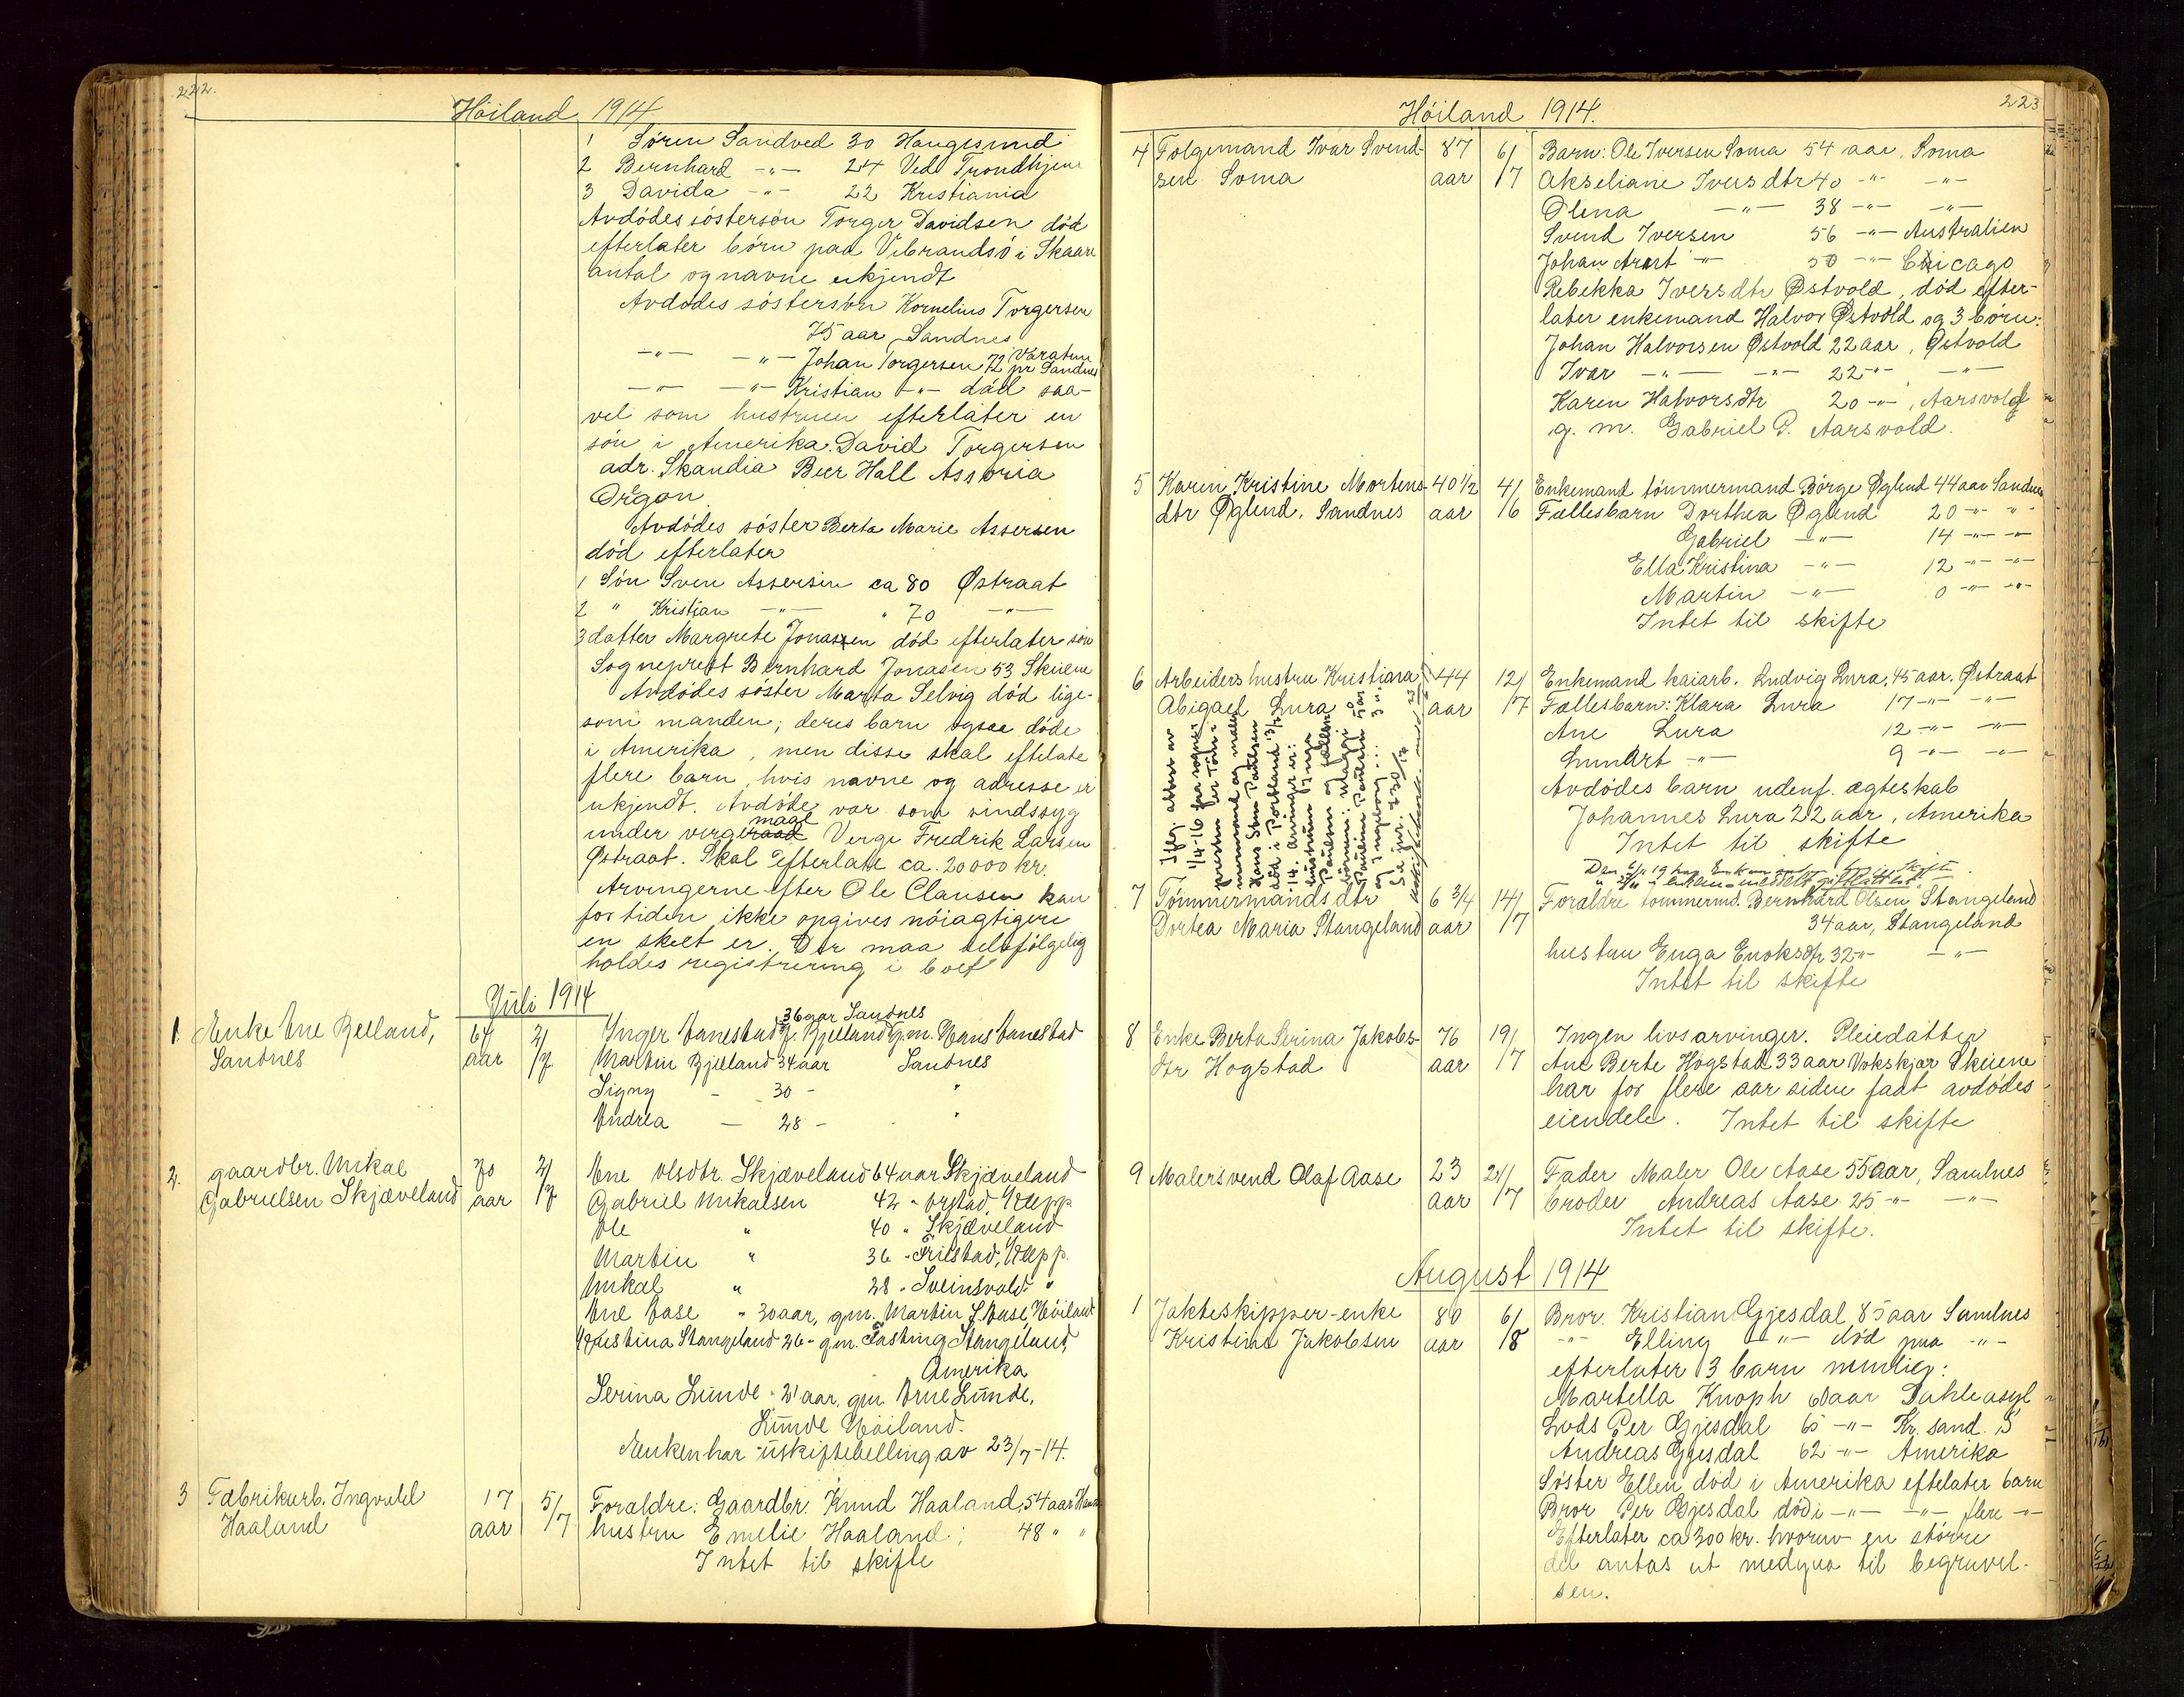 222.
Höiland 1914
1 Sören Sandved 30 Haugesund
2 Bernhard -"- 24 Ved Trondhjem
3 Davida -"- 22 Kristiania
Avdödes söstersön Torger Davidsen död
efterlater börn paa Vibrandsö i Skaare
antal og navne ukjendt
Avdödes söstersön Kornelius Torgersen
75 aar Sandnes
-"- -"- Johan Torgersen 72 Varatun pr Sandnes
-"- -"- Kristian -"- död saa-
vel som hustruen efterlater en
sön i Amerika. David Torgersen
adr. Skandia Beer Hall Astoria
Oregon
Avdödes söster Berta Marie Assersen
död efterlater
1 Sön Sven Assersen ca 80 Östraat
2 " Kristian -"- " 70 -"-
3 datter Margrete Jonassen död efterlater sön
Sogneprest Bernhard Jonasen 53 Skiene
Avdödes söster Marta Selvig död lige-
som manden; deres barn ogsaa döde
i Amerika, men disse skal eftelate
flere barn, hvis navne og adresse er
ukjendt. Avdöde var som sindssyg
under vergemaal Verge Fredrik Larsen
Östraat. Skal efterlate ca. 20000 kr.
Arvingerne efter Ole Clausen kan
for tiden ikke opgives nöiagtigere
en skeet er. Der maa selvfölgelig
holdes registrering i boet
Juli 1914
1. Enke Ane Bjelland, 64 2/ Inger Vanestad f. Bjelland g.m. Hans Vanestad
36 aar Sandnes
Sandnes aar /7 Martin Bjelland 34 aar Sandnes
Signy - 30 - "
Andrea - 28 - "
2. gaardbr. Mikal 70 2/ Ane Olsdtr. Skjæveland 64 aar Skjæveland
Gabrielsen Skjæveland aar /7 Gabriel Mikalsen 42 - Orstad, Klepp
Ole " 40 " Skjæveland
Martin " 36 - Friestad, Klepp.
Mikal " 28 - Sveinsvold "
Ane Aase " 30 aar, gm. Martin S. Aase, Höiland
Kristina Stangeland 26 - g.m. Tasting Stangeland,
Amerika
Serina Lunde - 21 aar, gm. Arne Lunde,
Lunde Höiland.
Enken har uskiftebevilling av 23/7-14.
3 Fabrikarb. Ingvald 17 5/ Foraldre: Gaardbr. Knud Haaland, 54 aar
Haaland aar /7 hustru Emelie Haaland; 48 " "
Intet til skifte
223
Höiland 1914.
4 Folgemand Ivar Svend- 87 6/ Barn: Ole Iversen Soma 54 aar, Soma
sen Soma aar /7 Akseliane Iversdtr 40 -"- -"-
Olena -"- 38 -"- -"-
Svend Iversen 56 -"- Australien
Johan Arnt -"- 50 -"- Chicago
Rebekka Iversdtr Østvold, död efter-
later enkemand Halvor Østvold og 3 börn:
Johan Halvorsen Østvold 22 aar, Østvold
Ivar -"- -"- 22 -"- -"-
Karen Halvorsdtr 20 -"-, Aarsvold
g. m. Gabriel P. Aarsvold.
5 Karen Kristine Mortens- 40 1/2 4/ Enkemand tömmermand Börge Øglend 44 aar Sandnes
dtr Øglend, Sandnes aar /6 Fællesbarn Dorthea Øglend 20 -"- "-
Gabriel -"- 14 -"- -"-
Ella Kristina -"- 12 -"- -"-
Martin -"- 0 -"- -"-
Intet til skifte
6 Arbeiders hustru Kristiana 44 12/ Enkemand kaiarb. Ludvig Lura, 45 aar. Østraat
Abigael Lura aar /7 Fællesbarn: Klara Lura 17 -"- -"-
Ane Lura 12 -"- -"-
Lunart -"- 9 -"- -"-
Avdödes barn udenf. ægteskab
Johannes Lura 22 aar, Amerika
Intet til skifte
Iflg. attest av
1/4-16 fra sogne-
presten er Töm-
mermand og maler
Hans Sten Paulsen
död i Portland 13/12
14. Arvinger er:
hustrun Inga
Paulsen og fælles
börnene: Magni 5 aar
Pauline Paulsen
og Ingeborg 3 "
7 Tömmermands dtr 6 3/4 14/ Foraldre tömmermd. Bernhard Olsen Stangeland
Dortea Maria Stangeland aar /7 34 aar, Stangeland
hustru Enga Enoksdtr 32 -"- -"-
Intet til skifte
8 Enke Berta Serina Jakobs- 76 19/ Ingen livsarvinger. Pleiedatter
dtr Hogstad aar /7 Ane Berte Hogstad 33 aar Vokskjær Skeiene
har for flere aar siden faat avdödes
eiendele. Intet til skifte
9 Malersvend Olaf Aase 23 21/ Fader Maler Ole Aase 55 aar, Sandnes
aar /7 broder Andreas Aase 25 -"- -"-
Intet til skifte.
August 1914
1 Jakteskipper-enke 80 6/ Bror. Kristian Gjesdal, 85 aar Sandnes
Kristine Jakobsen aar /8 -"- Elling -"- död paa -"-
efterlater 3 barn nemlig:
Martella Knoph 60 aar Dahle asyl
Lods Per Gjesdal 65 -"- Kr. sand. S
Andreas Gjesdal 62 -"- Amerika
Söster Ellen död i Amerika eftelater barn
Bror Per Gjesdal död i -"- -"- flere -"-
Efterlater ca 300 kr. hvorav en större
del antas at medgaa til begravel-
sen.